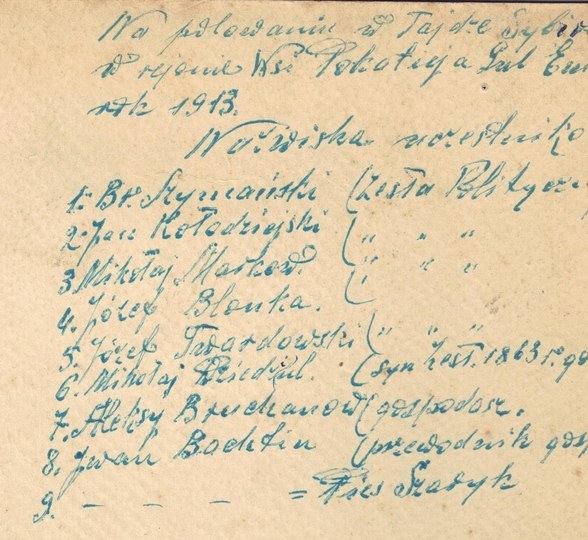 Na polowaniu w Tajdze Sybir
w rejonie Wsi Pokatieja Gub
rok 1913.
Nazwiska uczestników
1. Br. Szymański (Zesła Polityczn
2. Jan Kołodziejski ( " " "
3. Mikołaj Markow. ( " " "
4. Józef Blonka. (
5. Józef Twardowski ( " " "
6. Mikołaj (syn Zesł. 1863 r.
7. Aleksy Bruchanow (gospodarz.
8. Iwan Bachtin (przewodnik gosp
9. – – – = Pies Szaryk